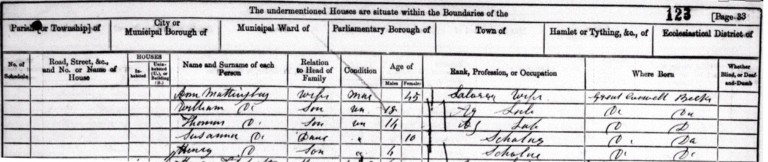 The undermentioned Houses are situate within the Boundaries of the 123 [Page 33
Parish [or Township] of City or Municipal Borough of Municipal Ward of Parliamentary Borough of Town of Hamlet or Tything, &c., of Ecclesiastical District of
No. of Schedule Road, Street, &c., and No. or Name of House HOUSES Inhabited Uninhabited (U.), or Building (B.) Name and Surname of each Person Relation to Head of Family Condition Age of Males Females Rank, Profession, or Occupation Where Born Whether Blind, or Deaf-and-Dumb
Ann Mattingley Wife Mar 45 Wife Berks
William Do Son un 18 Ag Lab Do Do
Thomas Do Son un 14 Ag Lab Do Do
Susanna Do Daur 10 Scholar Do Do
Henry Do Son 6 Scholar Do Do